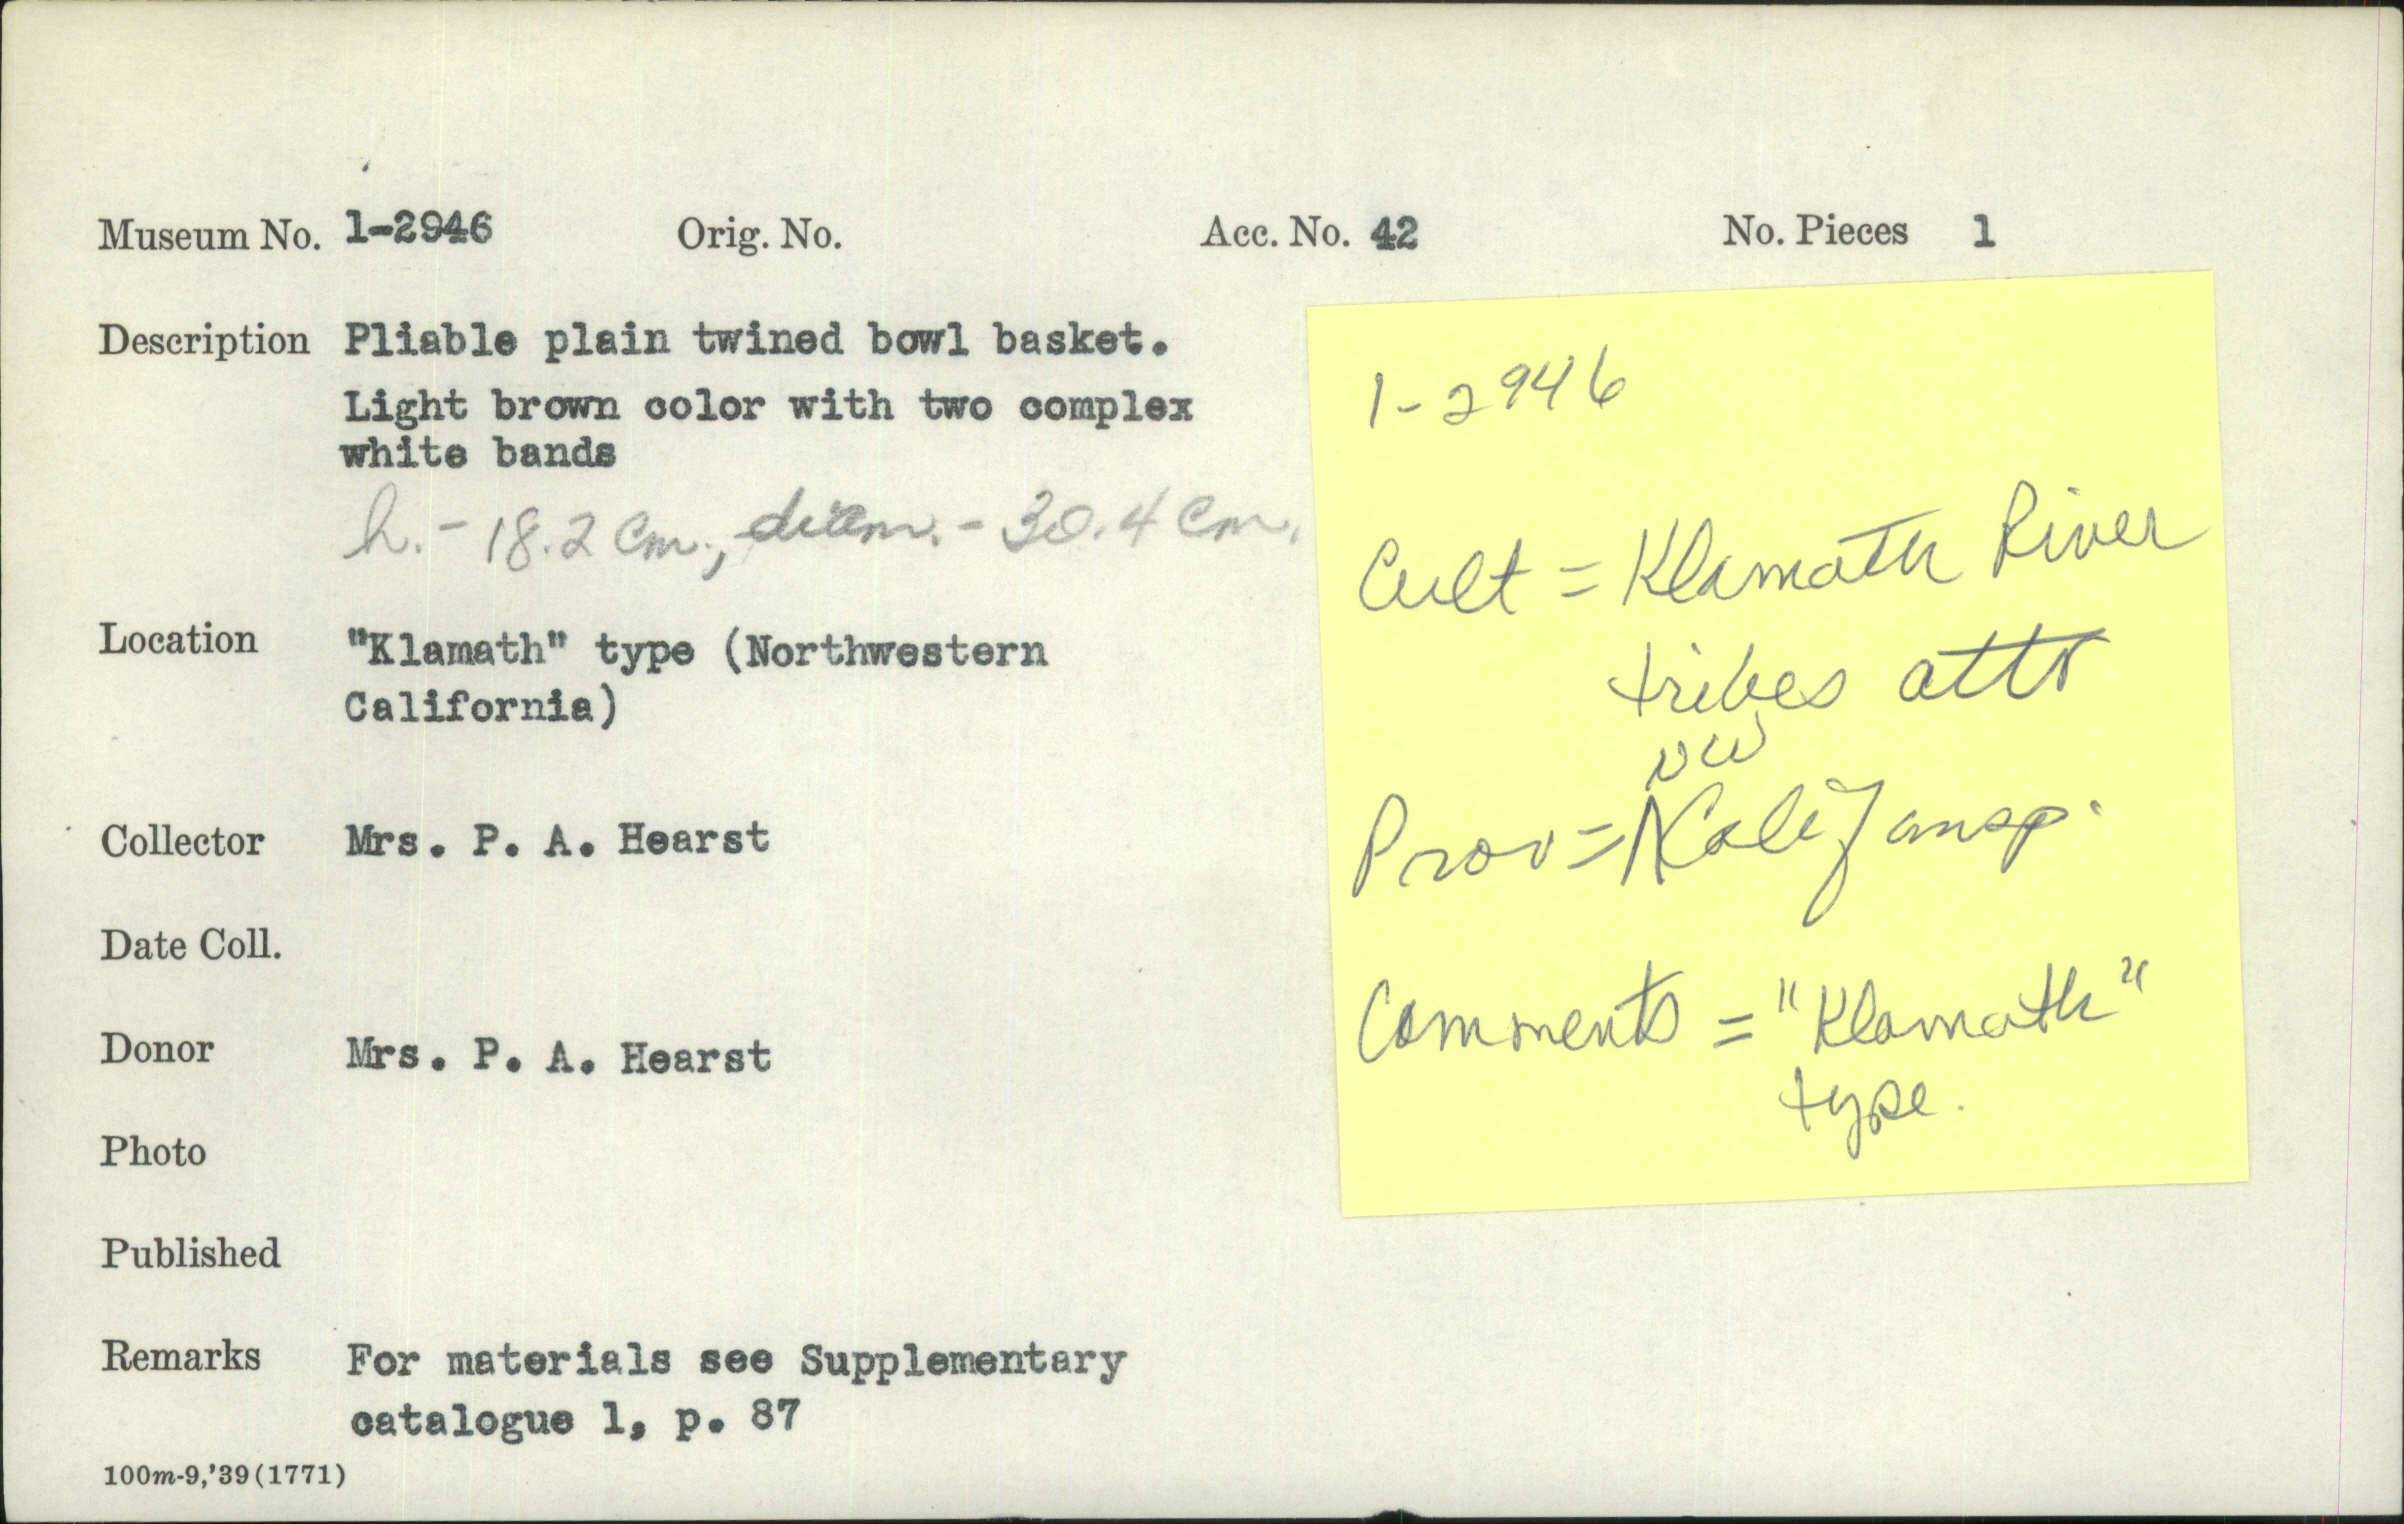 Museum No. 1-2946 Orig. No. Acc. No. 42 No. Pieces 1
Description Pliable plain twined bowl basket.
Light brown color with two complex
white bands
h. - 18.2 cm., diam. - 30.4 cm.
Location "Klamath" type (Northwestern
California)
Collector Mrs. P. A. Hearst
Date Coll.
Donor Mrs. P. A. Hearst
Photo
Published
Remarks For materials see Supplementary
catalogue 1, p. 87
100m-9,'39(1771)
1-2946
Cult = Klamath River
tribes attr
NW
Prov = Calif
Comments = "Klamath"
type.